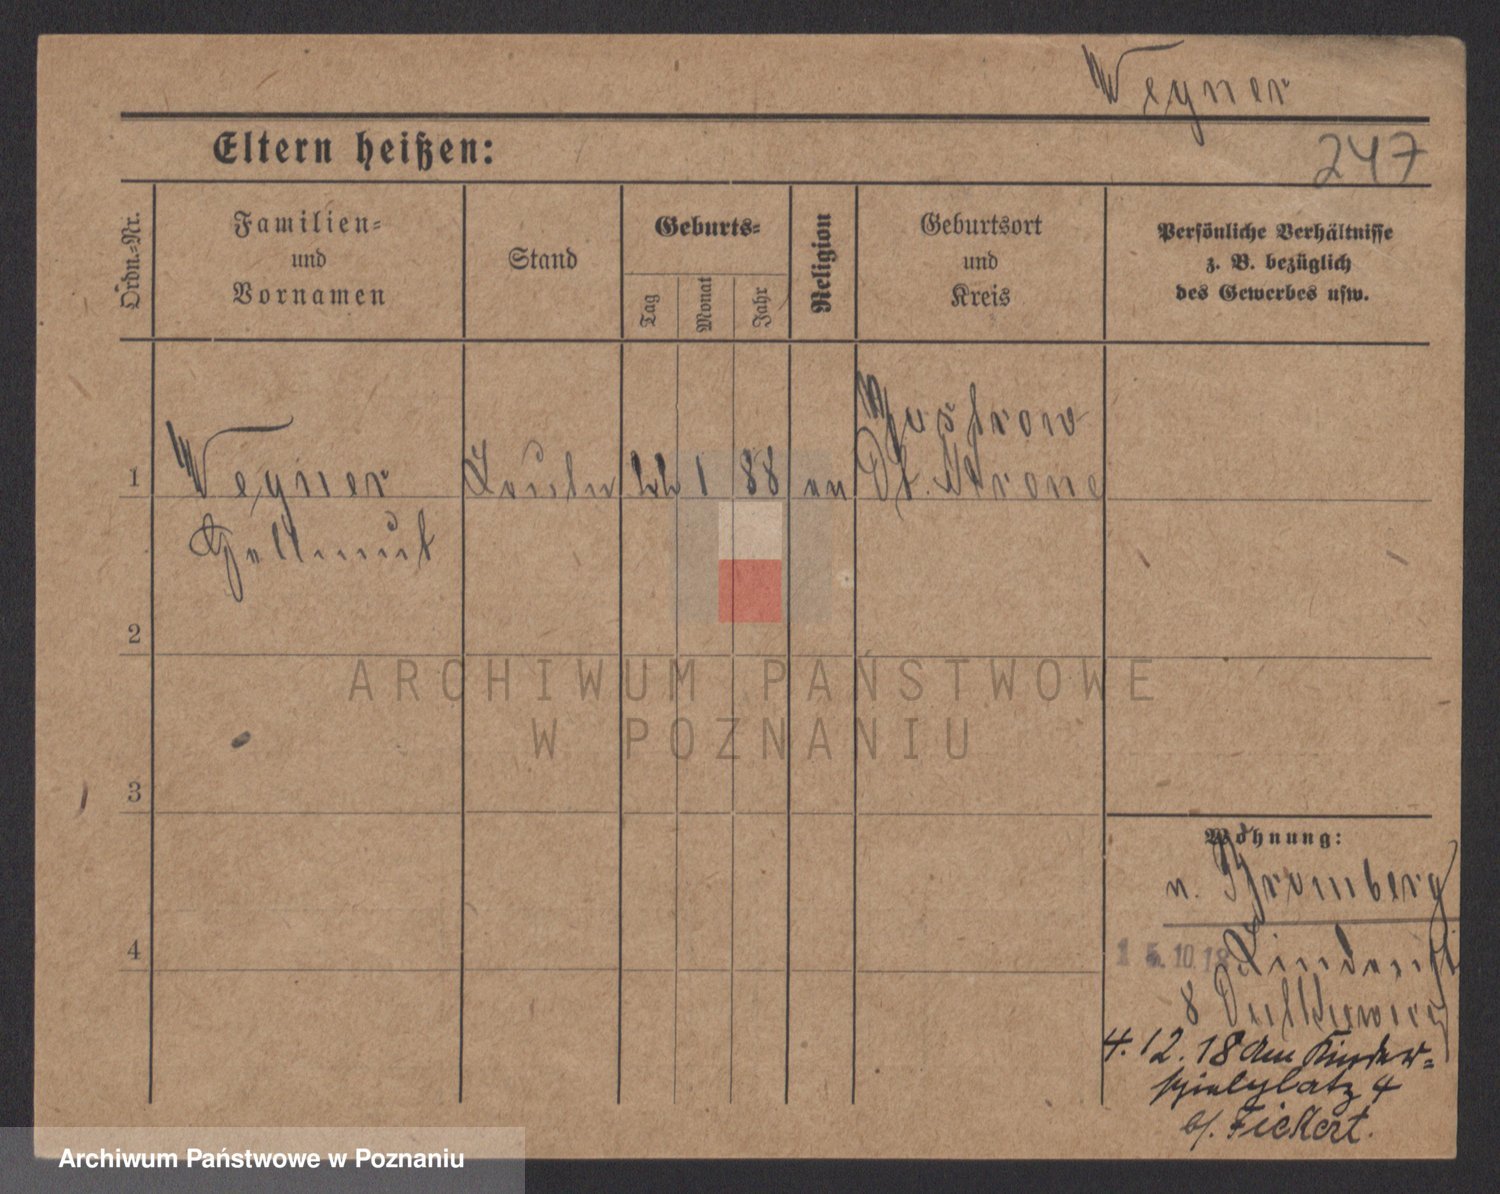 Wegner
Eltern heißen:
247
Ordn.-Nr.
Familien-
und
Vornamen
Stand
Geburts-
Tag
Monat
Jahr
Religion
Geburtsort
und
Kreis
Persönliche Verhältnisse
z. B. bezüglich
des Gewerbes usw.
1
Wegner
Hellmut
1 88
Dt. Krone
2
3
4
Wohnung:
n. Bromberg
15.10.18
8
4.12.18 Am Kinder-
spielplatz 4
b/. Fickert.
ARCHIWUM PAŃSTWOWE
W POZNANIU
Archiwum Państwowe w Poznaniu